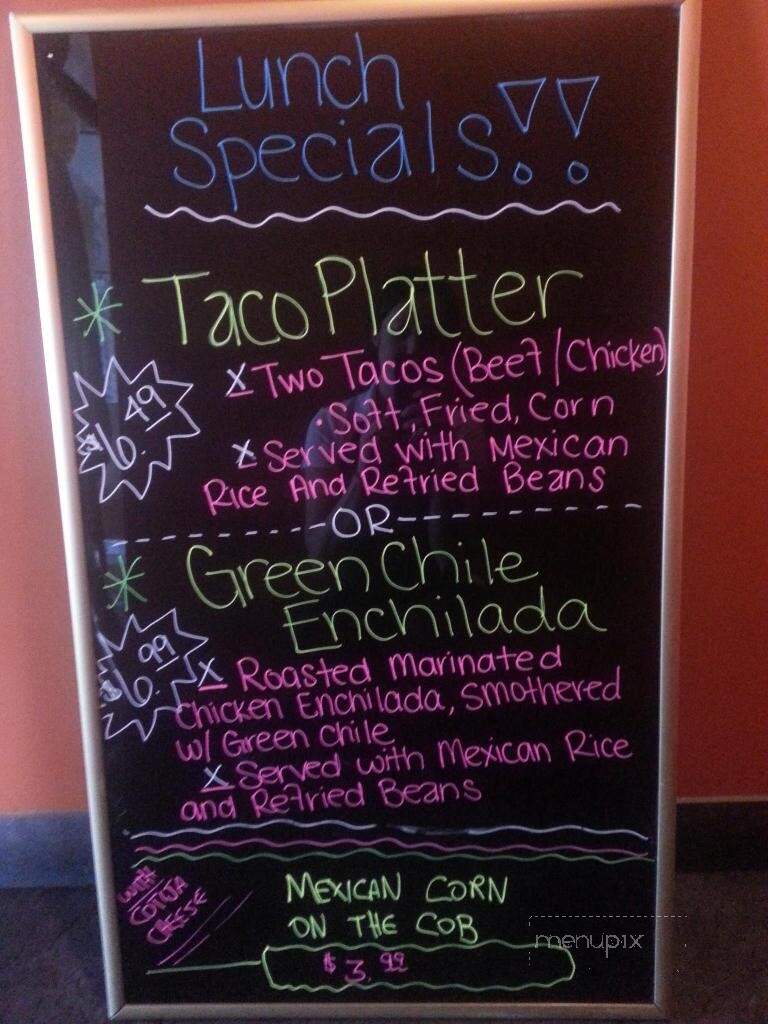 Lunch
Specials!!
* Taco Platter
$6.49
x Two Tacos (Beef/Chicken)
· Soft, Fried, Corn
x Served with Mexican
Rice And Refried Beans
OR
* Green Chile
Enchilada
$6.99
x Roasted Marinated
Chicken Enchilada, Smothered
w/ Green Chile
x Served with Mexican Rice
and Refried Beans
WITH
COTIJA
CHEESE
MEXICAN CORN
ON THE COB
$3.99
menupix